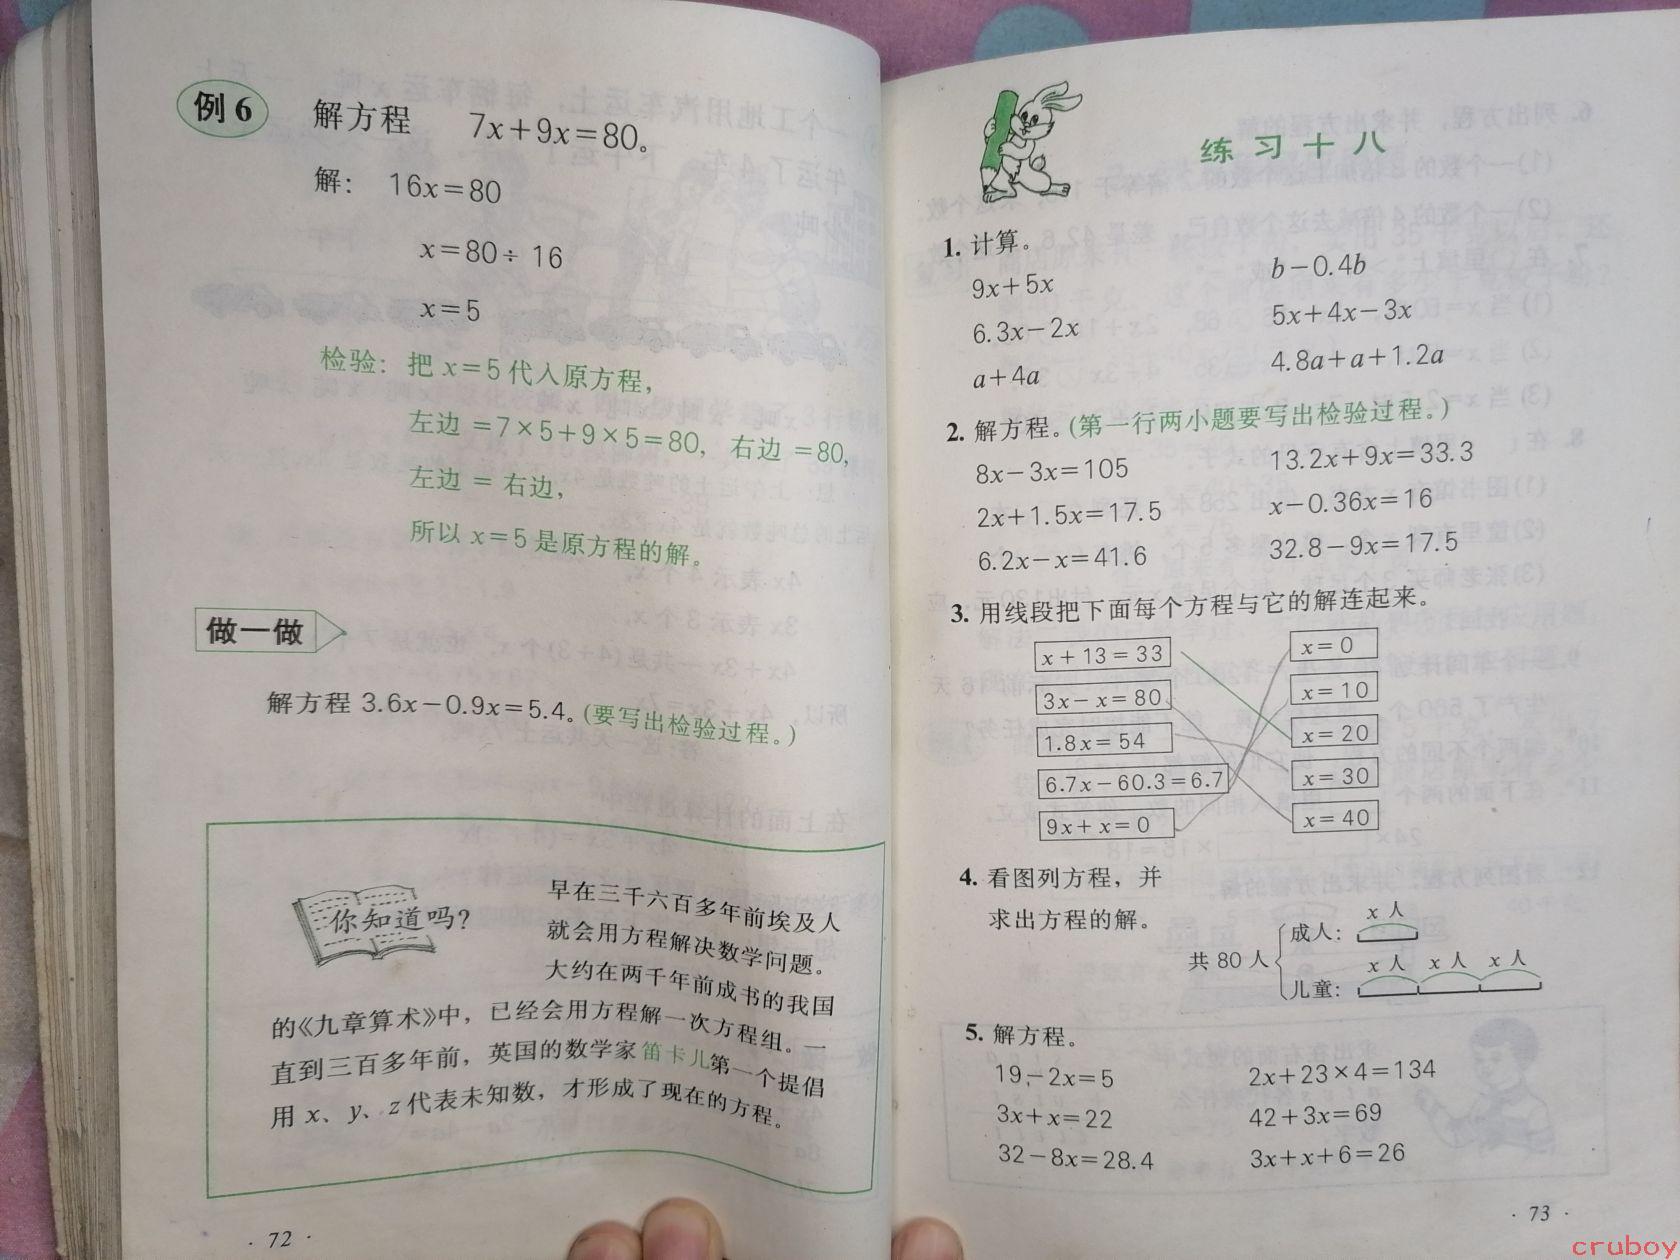 例6 解方程 7x+9x=80。
解： 16x=80
x=80÷16
x=5
检验：把 x=5代入原方程，
左边=7×5+9×5=80，右边=80，
左边=右边，
所以 x=5是原方程的解。
做一做
解方程 3.6x-0.9x=5.4。(要写出检验过程。)
你知道吗?
早在三千六百多年前埃及人
就会用方程解决数学问题。
大约在两千年前成书的我国
的《九章算术》中，已经会用方程解一次方程组。一
直到三百多年前，英国的数学家笛卡儿第一个提倡
用 x、y、z代表未知数，才形成了现在的方程。
· 72 ·
练习十八
1. 计算。
9x+5x b-0.4b
6.3x-2x 5x+4x-3x
a+4a 4.8a+a+1.2a
2. 解方程。(第一行两小题要写出检验过程。)
8x-3x=105 13.2x+9x=33.3
2x+1.5x=17.5 x-0.36x=16
6.2x-x=41.6 32.8-9x=17.5
3. 用线段把下面每个方程与它的解连起来。
x+13=33 x=0
3x-x=80 x=10
1.8x=54 x=20
6.7x-60.3=6.7 x=30
9x+x=0 x=40
4. 看图列方程，并
求出方程的解。
x人
成人：
共80人
x人 x人 x人
儿童：
5. 解方程。
19-2x=5 2x+23×4=134
3x+x=22 42+3x=69
32-8x=28.4 3x+x+6=26
· 73 ·
cruboy